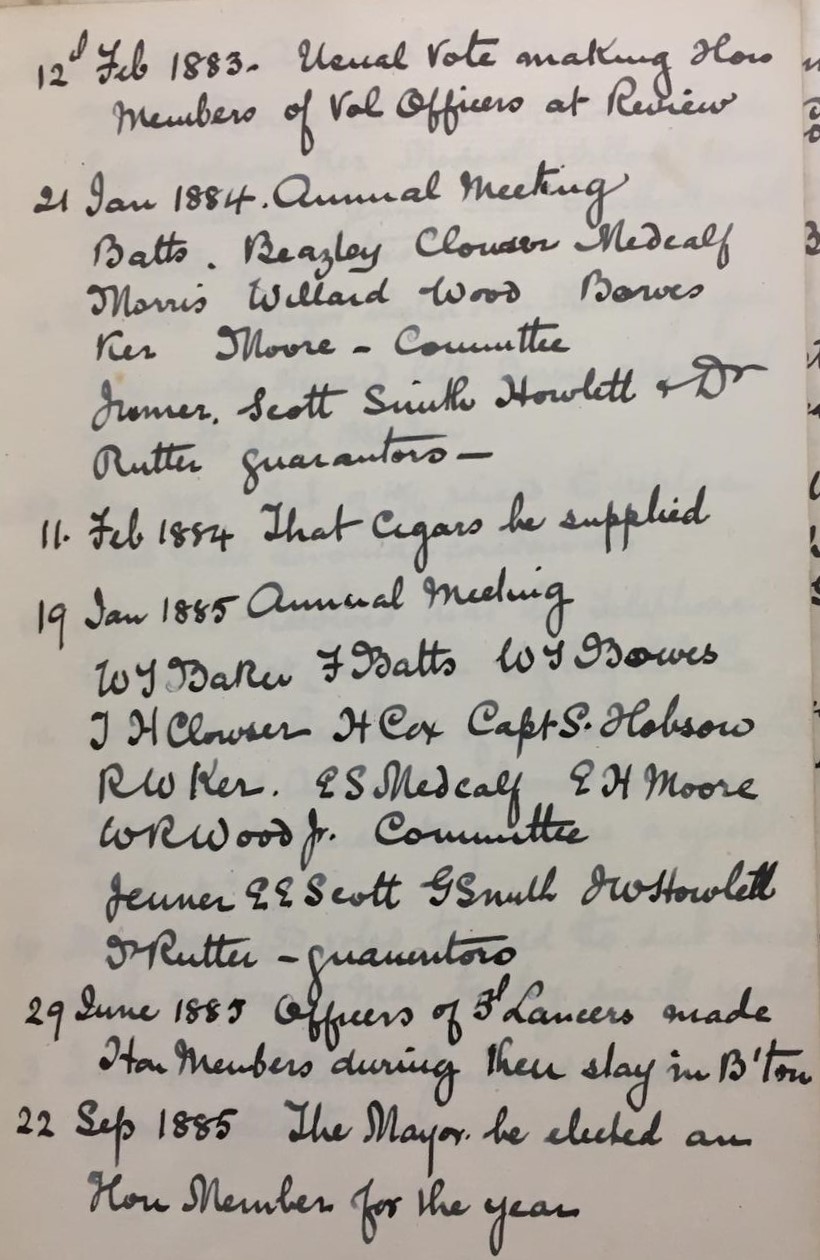 12d Feb 1883. Usual Vote making Hon
Members of Vol Officers at Review
21 Jan 1884. Annual Meeting
Batts. Beazley Clowser Medcalf
Morris Willard Wood Bowes
Ker Moore - Committee
Jenner. Scott Smith Howlett & Dr
Rutter guarantors —
11. Feb 1884 That Cigars be supplied
19 Jan 1885 Annual Meeting
W J Baker F Batts W J Bowes
J H Clowser H Cox Capt S. Hobson
R W Ker. E S Medcalf E H Moore
W R Wood Jr. Committee
Jenner E E Scott G Smith J W Howlett
Dr Rutter - guarantors
29 June 1885 Officers of 5d Lancers made
Hon Members during their stay in B'ton
22 Sep 1885 The Mayor. be elected an
Hon Member for the year